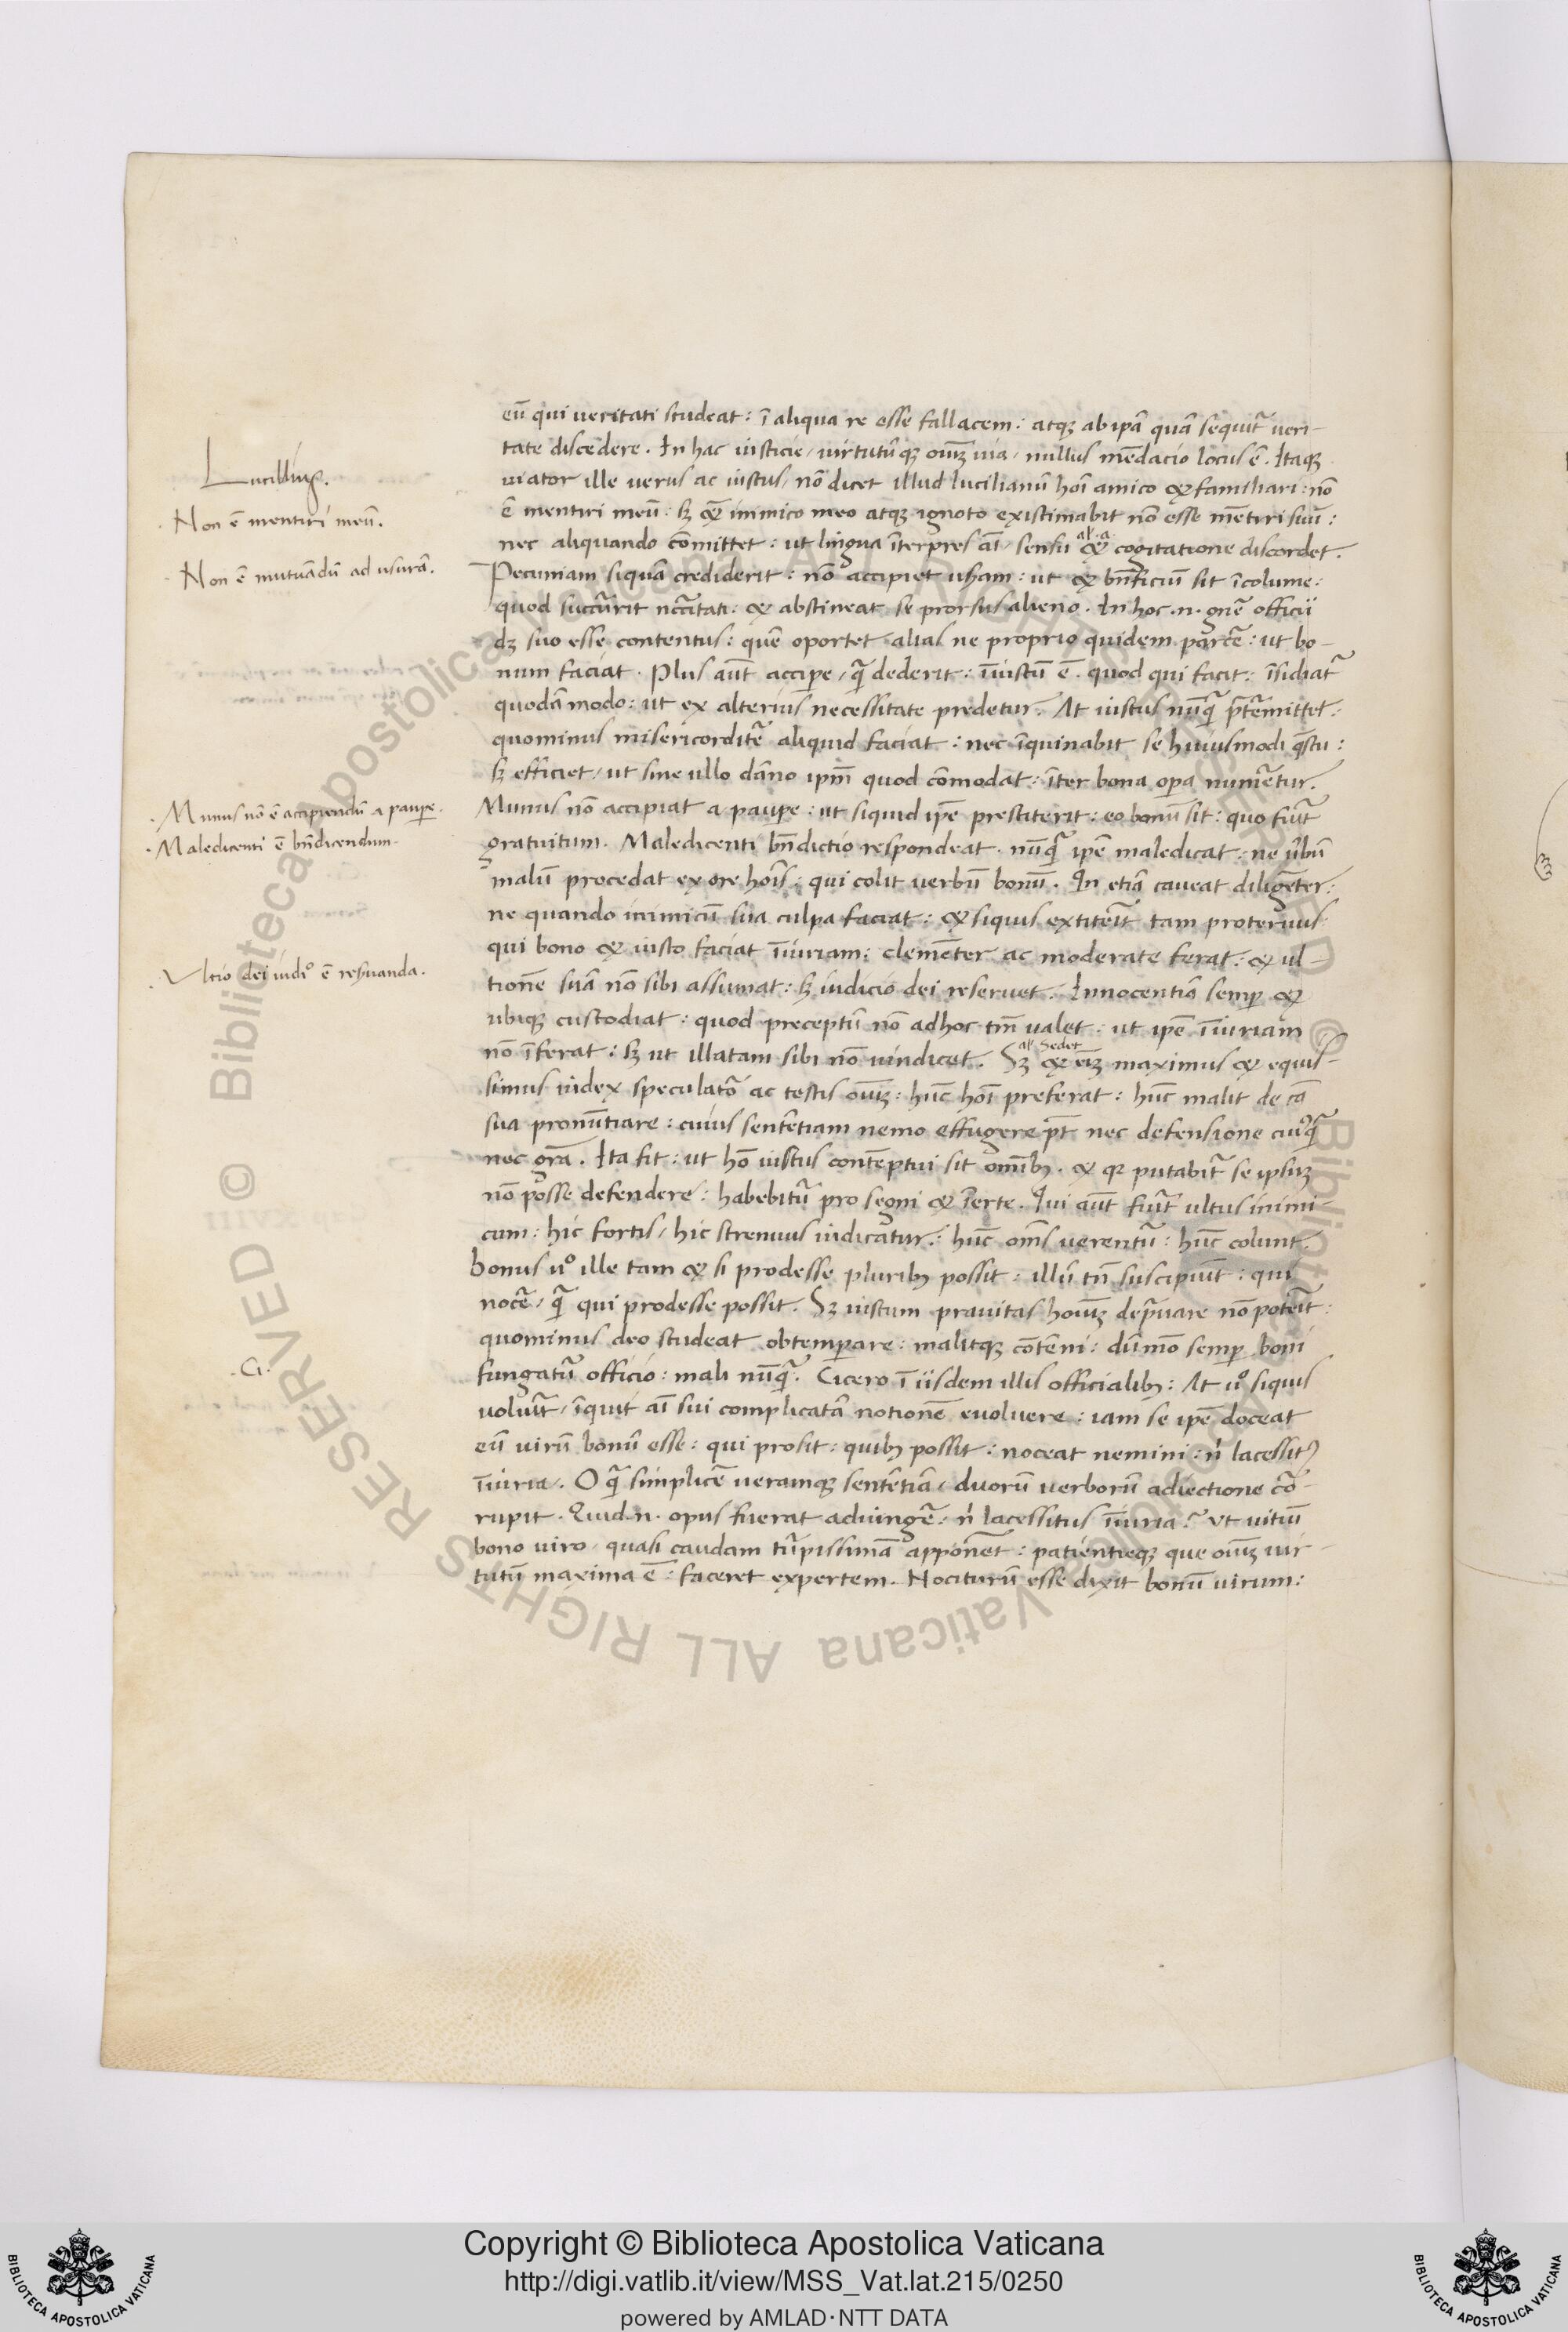 eū qui veritati studeat: ī aliqua re esse fallacem: atqꝫ ab ipā quā sequit̄ veri-
tate discedere. In hac iusticie/ virtutūqꝫ oīuꝫ uia/ nullus mēdacio locus ē. Itaqꝫ
Lucillius.
viator ille verus ac iustus/ nō dicet illud lucilianū hoī amico & familiari: nō
Non ē mentiri meū.
ē mentiri meū: sꝫ & inimico meo atqꝫ ignoto existimabit nō esse mētiri suū:
nec aliquando cōmittet: ut lingua īterpres aī/ sensu & cogitatione discordet.
al. a
Non ē mutuādū ad usurā.
Pecuniam siquā crediderit: nō accipiet usham: ut & bn̄ficiū sit īcolume:
quod succurrit nccītati: & abstineat se prorsus alieno. In hoc .n. gn̄e officii
dꝫ suo esse contentus: quē oportet alias ne proprio quidem parcē: ut bo-
num faciat. Plus aūt accipe/ q̄ dederit: īiustū ē. quod qui facit: īsidiat̄
quodā modo: ut ex alterius necessitate predetur. At iustus nūq̄ p̄termittet:
quominus misericorditē aliquid faciat: nec īquinabit se huiusmodi q̄stu:
sꝫ efficiet/ ut sine ullo dāno ipm̄ quod cōmodat: īter bona opa numētur.
Munus nō ē accipiendū a paupe.
Munus nō accipiat a paupe: ut siquid ipē prestiterit: eo bonū sit: quo fuīt
Maledicenti ē bn̄dicendum.
gratuitum. Maledicenti bn̄dictio respondeat. nūq̄ ipē maledicat: ne ūbū
malū procedat ex ore hoīs: qui colit verbū bonū. In etiā caveat diligēter:
ne quando inimicū sua culpa faciat: & siquis extiterīt tam protervus
qui bono & iusto faciat īiuriam: clemēter ac moderate ferat: & ul-
Ultio dei iudiº ē resuanda.
tionē suā nō sibi assumat: sꝫ iudicio dei reservet. Innocentiā semp &
ubiqꝫ custodiat: quod preceptū nō ad hoc tm̄ valet. ut ipē īiuriam
nō īferat: sꝫ ut illatam sibi nō vindicet. Sꝫ & eīꝫ maximus & equis-
al. Sedet
simus iudex speculatō ac testis oīuꝫ: hūc hoī preferat: hūc malit de cā
sua pronūtiare: cuius sentētiam nemo effugere pt̄ nec defensione cuiºq̄
nec gr̄a. Ita fit: ut hō iustus contēptui sit omībꝫ. & qꝛ putabit̄ se ipsuꝫ
nō posse defendere: habebitū pro segni & īerte. Qui aūt fuīt ultus inimi-
cum: hic fortis/ hic strenuus iudicatur: hūc om̄s verentū: hūc colunt.
bonus ūº ille tam & si prodesse pluribꝫ possit: illū tn̄ suscipiūt: qui
nocē/ q̄ qui prodesse possit. Sꝫ iustum pravitas hoīuꝫ depravare nō poterīt:
quominus deo studeat obtemperare: malitqꝫ cōtēni: dūmō semp boni
.Ci.
fungatū officio: mali nūq̄. Cicero ī iisdem illis officialibꝫ: At ūº siquis
voluīt/ īquit aī sui complicatā notionē evolvere: iam se ipē doceat
eū virū bonū esse: qui prosit: quibꝫ possit: noceat nemini: n̄ lacessitꝰ
īiuria. O q̄ simplicē veramqꝫ sentētiā/ duorū verborū adiectione cō-
rupit. Quid .n. opus fuerat adiungē: n̄ lacessitus īiuria? Ut vitiū
bono viro/ quasi caudam tūpissimā apponēt: patientieqꝫ que oīuꝫ vir-
tutū maxima ē: faceret expertem. Nociturū esse dixit bonū virum:
Copyright © Biblioteca Apostolica Vaticana
http://digi.vatlib.it/view/MSS_Vat.lat.215/0250
powered by AMLAD·NTT DATA